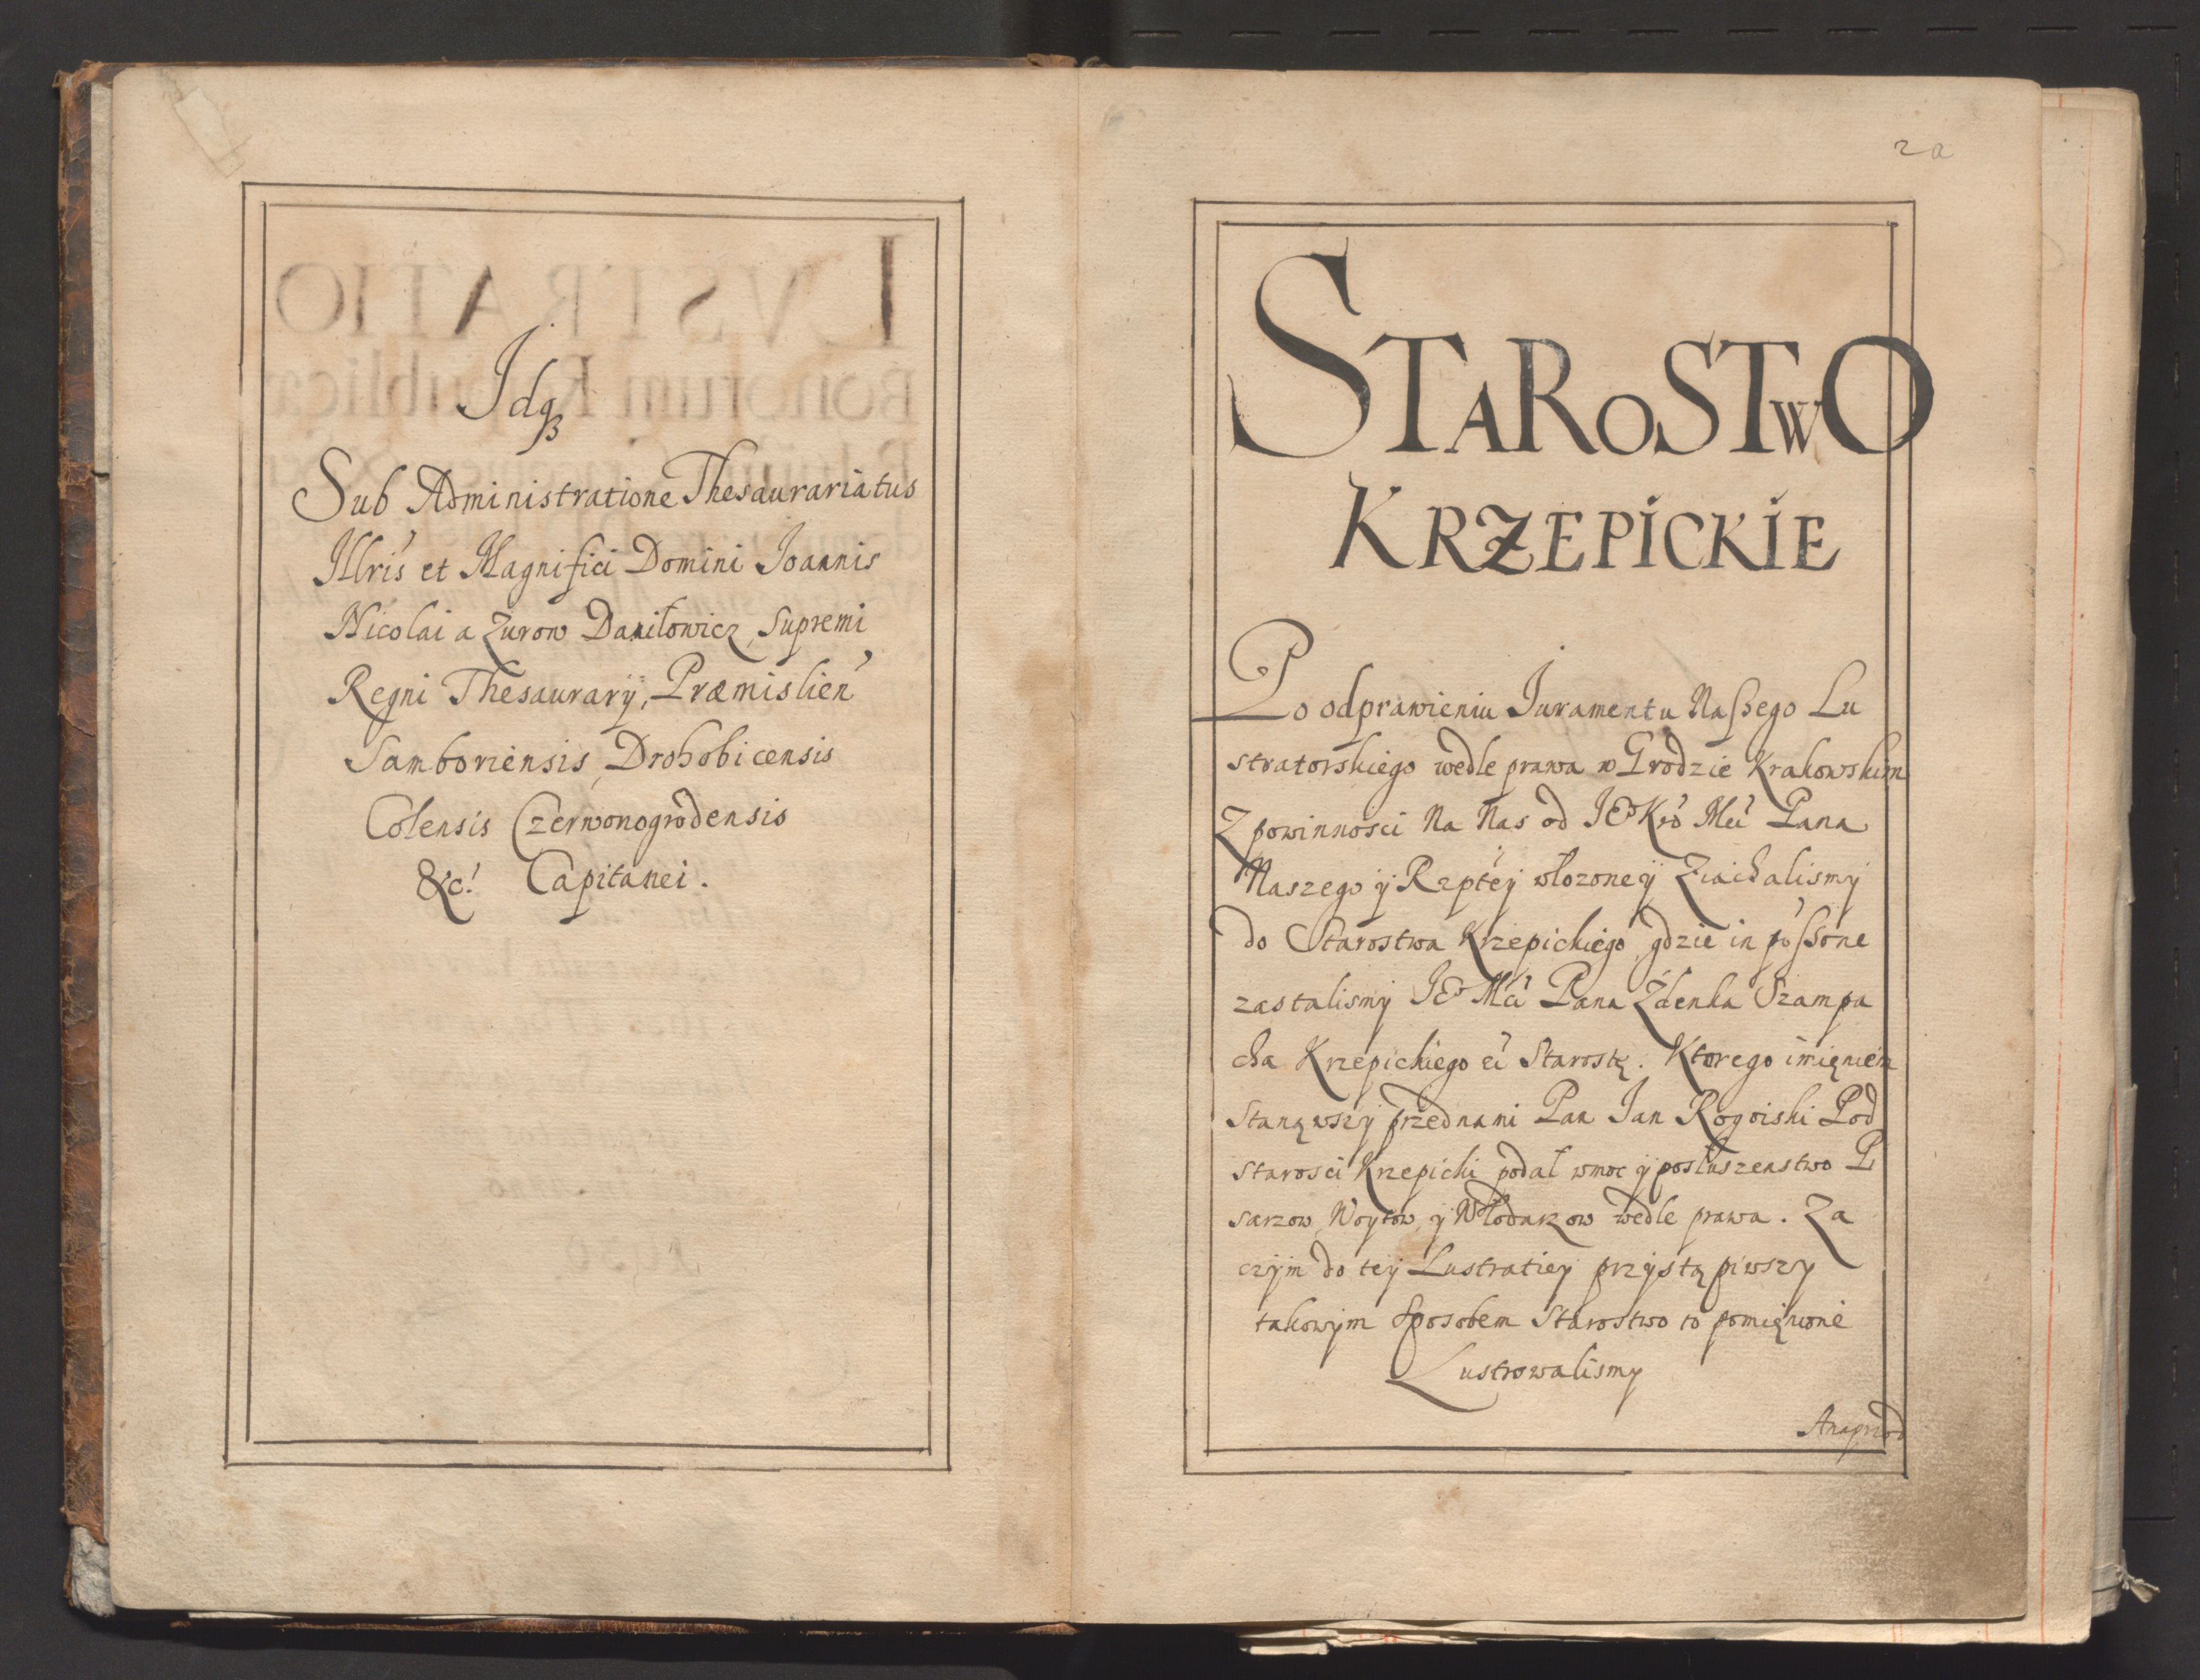 Idqꝫ
Sub Administratione Thesaurariatus
Illris et Magnifici Domini Joannis
Nicolai a Zurow Daniłowicz, Supremi
Regni Thesaurarÿ, Præmislien
Samboriensis, Drohobicensis
Colensis Czerwonogrodensis
&c. Capitanei.
2a
STAROSTWO
KRZEPICKIE
Po odprawieniu Juramentu Naszego Lu
stratorskiego wedle prawa w Grodzie Krakowskim
Z powinnosci Na Nas od JE Kró Mci Pana
Naszego ÿ Rzptey włozoneÿ Ziachalismÿ
do Starostwa Krzepickiego, gdzie in possone
zastalismÿ JE Mci Pana Zdenka Szampa
cha Krzepickiego ei Starostę. Ktorego imięniem
Stanąwszÿ przednami Pan Jan Rogoiski Pod
starosci Krzepicki podał wmoc ÿ posłuszenstwo Pi
sarzow, Woÿtow, ÿ Włodarzow wedle prawa. Za
czÿm do teÿ Lustratieÿ przÿstąpiwszÿ
takowÿm sposobem Starostwo to pomięnione
Lustrowalismÿ
Anaprzod